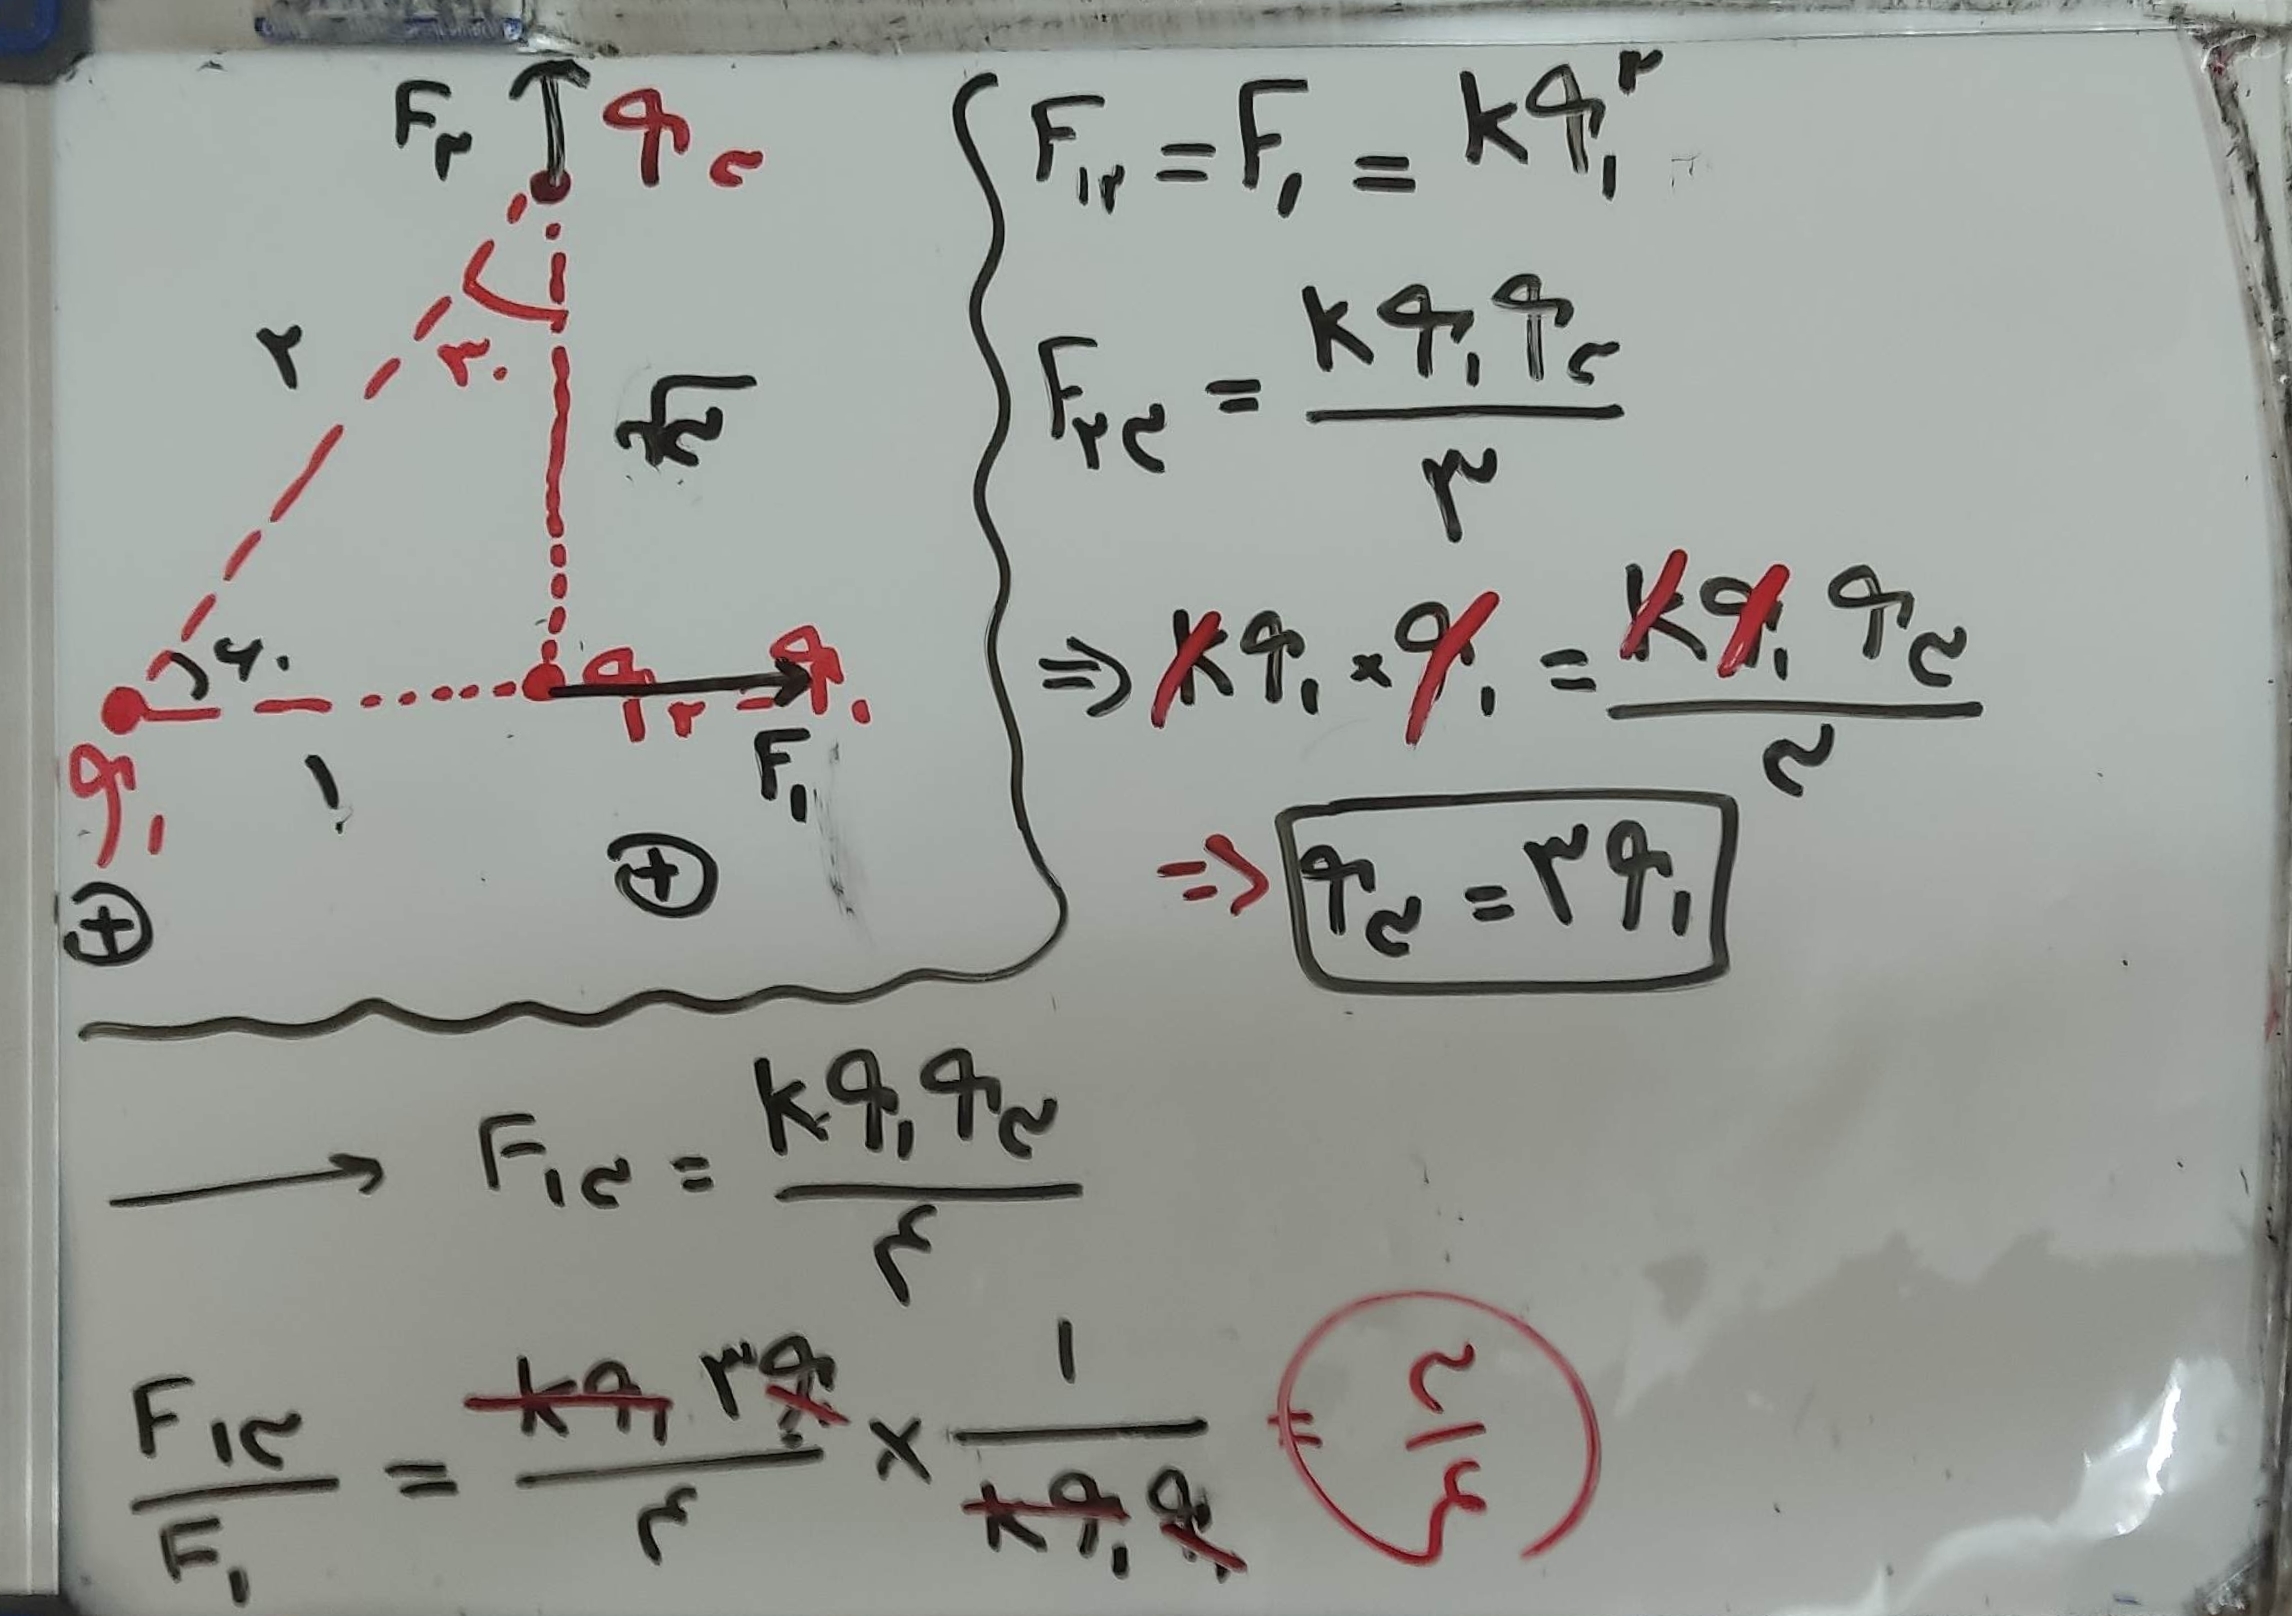 F۲ q۳
۲ ۳۰ √۳
۶۰
q۱ q۲ = q۱
۱ F۱
⊕ ⊕
F۱۲ = F۱ = kq۱²
F۲۳ = kq۱q۳ / ۳
⇒ kq۱ × q۱ = kq۱ q۳ / ۳
⇒ q۳ = ۳q۱
→ F۱۳ = kq۱q۳ / ۴
F۱۳ / F۱ = kq۱ ۳q۱ / ۴ × ۱ / kq۱ q۱ = ۳ / ۴